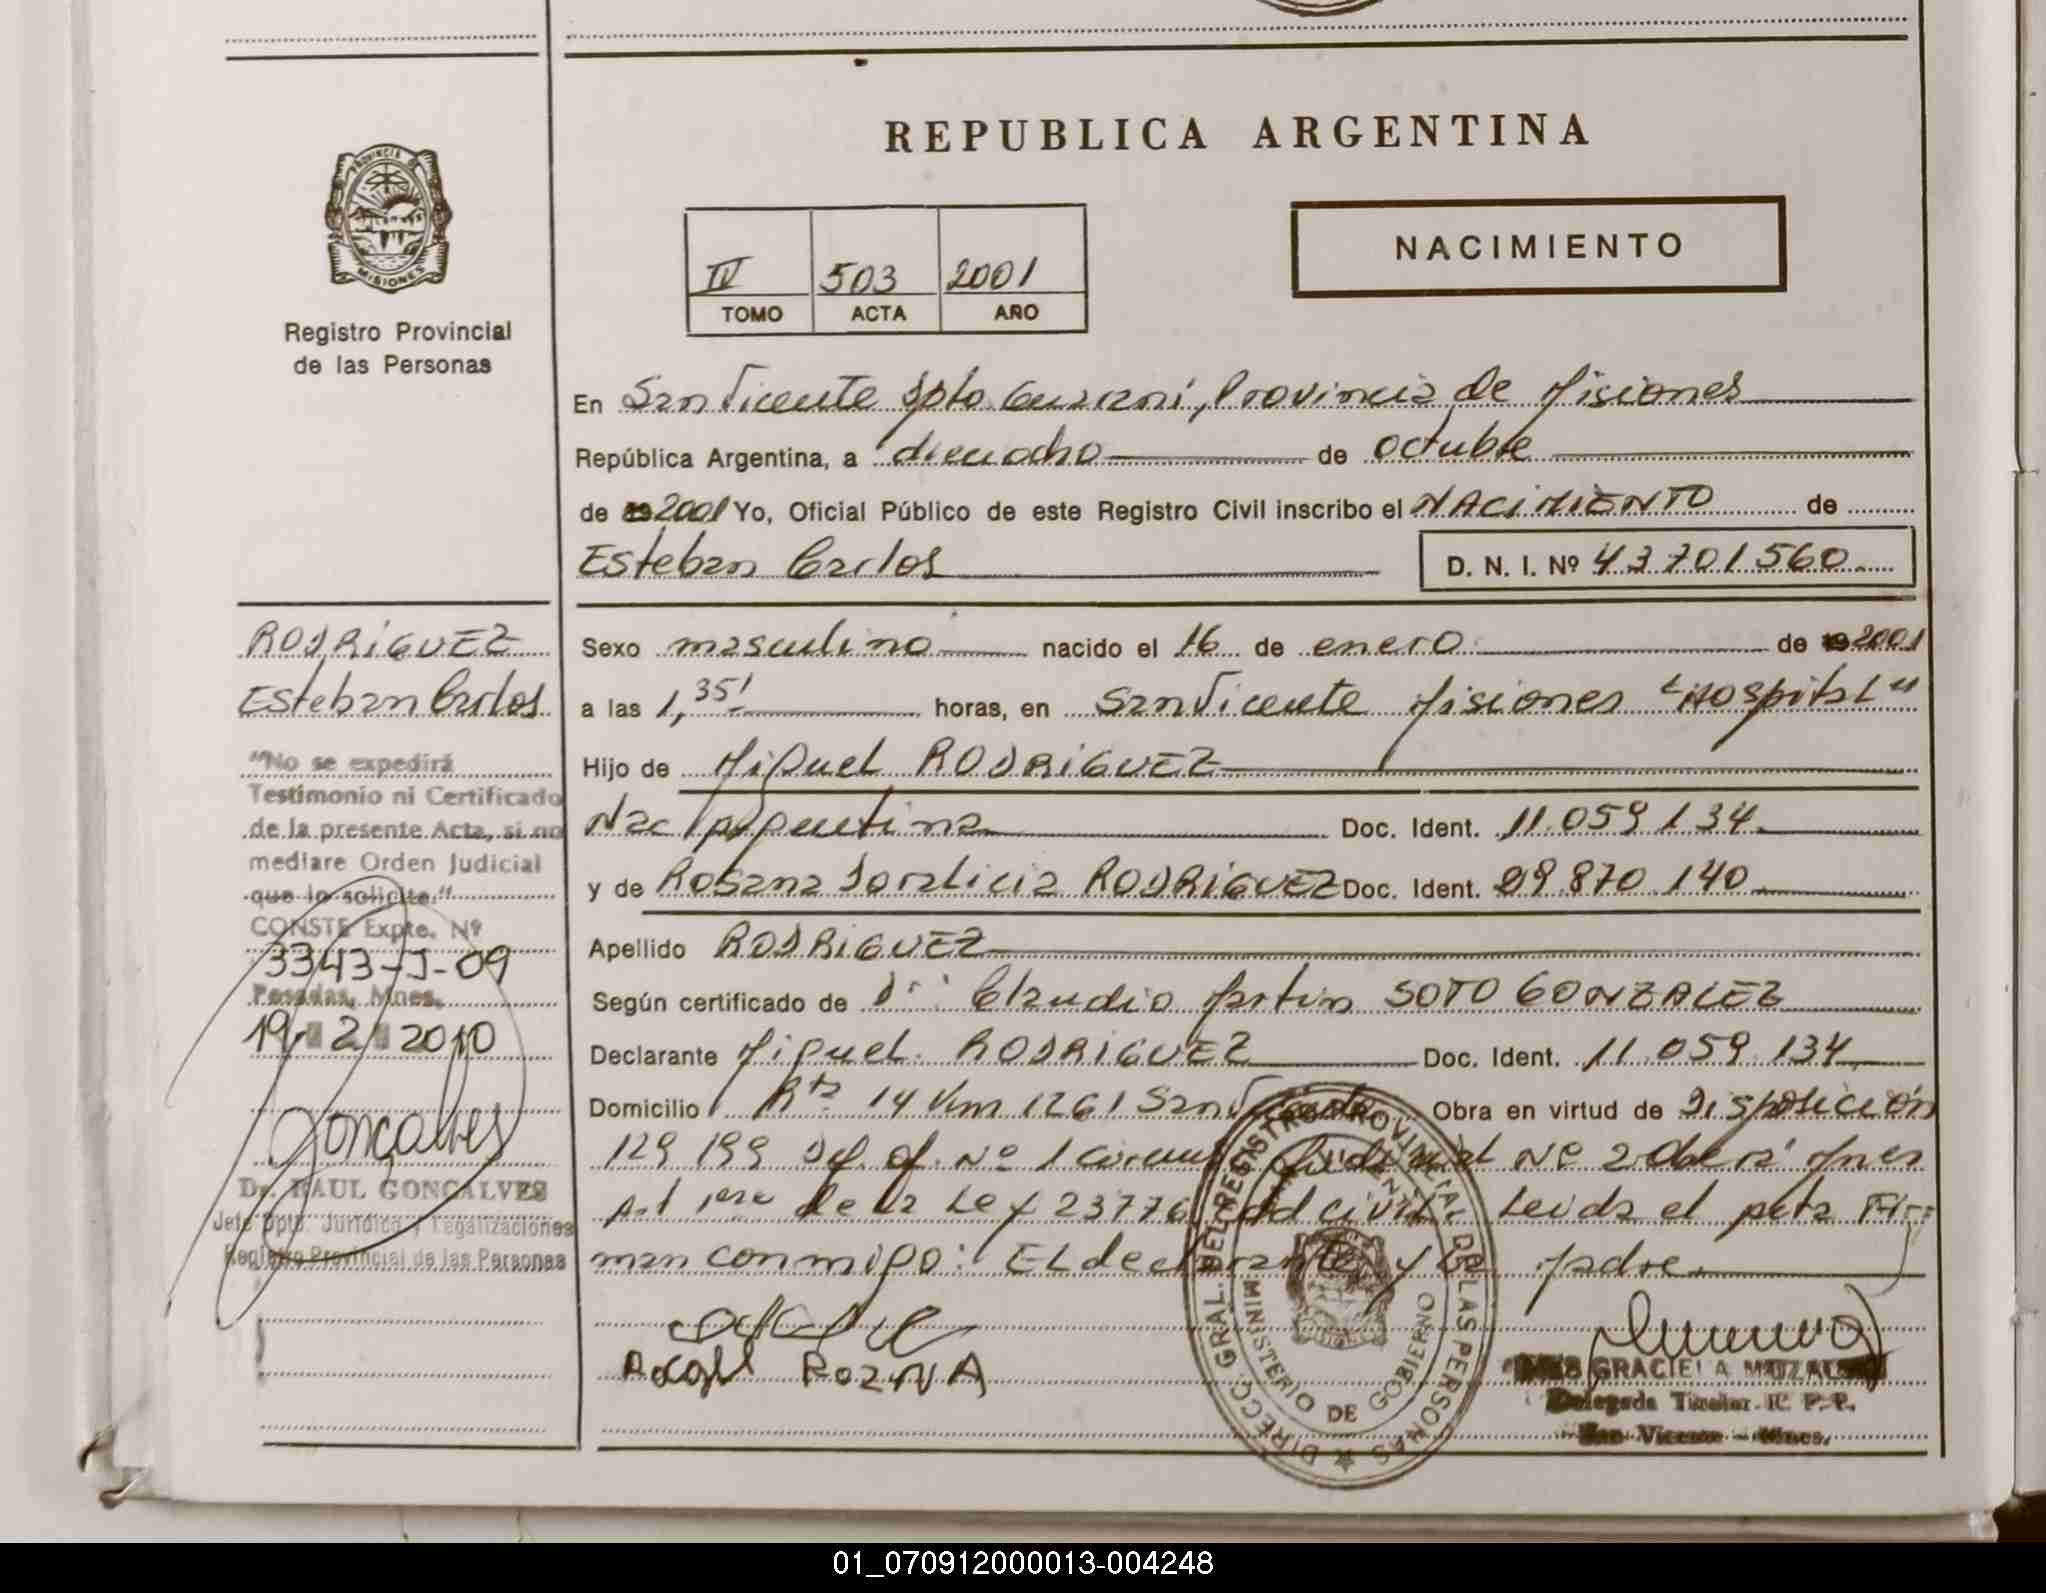 REPUBLICA ARGENTINA
PROVINCIA DE
MISIONES
Registro Provincial
de las Personas
NACIMIENTO
IV 503 2001
TOMO ACTA AÑO
En San Vicente Dpto. Guarani, Provincia de Misiones
República Argentina, a dieciocho de octubre
de 19 2001 Yo, Oficial Público de este Registro Civil inscribo el NACIMIENTO de
Esteban Carlos D. N. I. Nº 43701560
RODRIGUEZ
Esteban Carlos
"No se expedirá
Testimonio ni Certificado
de la presente Acta, si no
mediare Orden Judicial
que lo solicite."
CONSTE Expte. Nº
3343-J-09
Posadas, Mnes.
19 2 2010
Goncalves
Dr. RAUL GONCALVES
Jefe Dpto. Jurídica y Legalizaciones
Registro Provincial de las Personas
Sexo masculino nacido el 16 de enero de 19 2001
a las 1,35' horas, en San Vicente Misiones "Hospital"
Hijo de Miguel RODRIGUEZ
Nac Argentina Doc. Ident. 11.059.134
y de Rosana RODRIGUEZ Doc. Ident. 29.870.140
Apellido RODRIGUEZ
Según certificado de Dr: Claudio Martin SOTO GONZALEZ
Declarante Miguel RODRIGUEZ Doc. Ident. 11.059.134
Domicilio Rta 14 Km 1261 San Vicente Obra en virtud de Disposición
129/99 Def. of. Nº 1 Judicial Nº 2 Oberá Mnes
Art 1ero de la Ley 23776 Leida el acta Fir-
man conmigo: El declarante y la madre
ROZNA
DIRECC. GRAL. DEL REGISTRO PROVINCIAL DE LAS PERSONAS
MINISTERIO DE GOBIERNO
GRACIELA
Delegada Titular R. P. P.
San Vicente - Mnes.
01_070912000013-004248